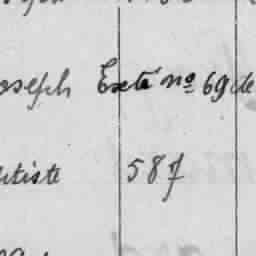 oseph Exté nº 69 de
tiste 587